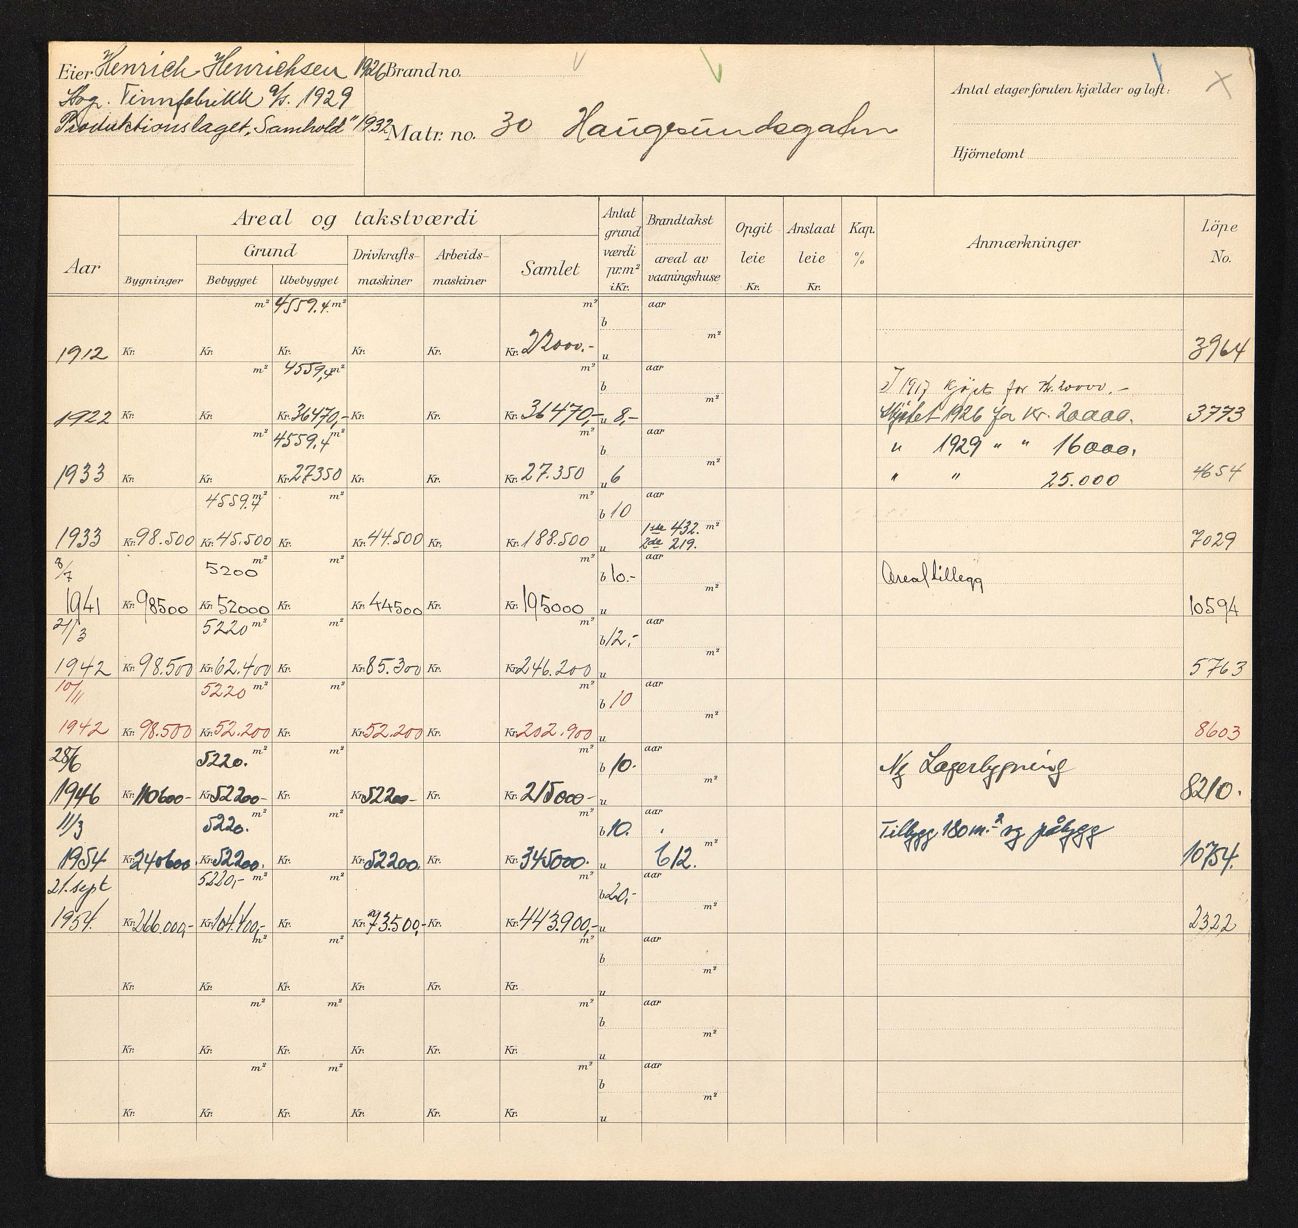 Eier Henrich Henrichsen 1926 Brand no.
Stvg. Tinnfabrikk a/s. 1929
Produktionslaget „Samhold" 1932
Matr. no. 30 Haugesundsgaten
Antal etager foruten kjælder og loft:
Hjörnetomt
Aar
Areal og takstværdi
Bygninger
Grund
Bebygget
Ubebygget
Drivkrafts-maskiner
Arbeids-maskiner
Samlet
Antal grund værdi pr. m² i Kr.
Brandtakst
areal av vaaningshuse
Opgit leie Kr.
Anslaat leie Kr.
Kap. %
Anmærkninger
Löpe No.
m² 4559.4 m² m² b aar m²
1912 Kr. Kr. Kr. Kr. Kr. Kr. 22000.- u 3964
m² 4559,4 m² m² b aar m² I 1917 kjøpt for Kr. 20000.-
1922 Kr. Kr. Kr. 36470,- Kr. Kr. Kr. 36470,- u 8,- Skjøtet 1926 for Kr. 20000. 3773
m² 4559.4 m² m² b aar m² " 1929 " " 16000.
1933 Kr. Kr. Kr. 27350 Kr. Kr. Kr. 27.350 u 6 " " 25.000 4654
4559.4 m² m² m² b 10 aar
1933 Kr. 98.500 Kr. 45.500 Kr. Kr. 44.500 Kr. Kr. 188.500 u 1ste 432. m² 7029
2de 219.
8/7 5200 m² m² m² b 10.- aar m² Arealtillegg
1941 Kr. 98500 Kr. 52000 Kr. Kr. 44500 Kr. Kr. 195000 u 10594
21/3 5220 m² m² m² b 12,- aar m²
1942 Kr. 98.500 Kr. 62.400 Kr. Kr. 85.300 Kr. Kr. 246.200 u 5763
10/11 5220 m² m² m² b 10 aar m²
1942 Kr. 98.500 Kr. 52.200 Kr. Kr. 52.200 Kr. Kr. 202.900 u 8603
28/6 5220. m² m² m² b 10. aar m² Ny Lagerbygning
1946 Kr. 110600- Kr. 52200- Kr. Kr. 52200- Kr. Kr. 215000- u 8210.
11/3 5220. m² m² m² b 10. aar Tilbygg 180 m.² og påbygg
1954 Kr. 240600. Kr. 52200. Kr. Kr. 52200. Kr. Kr. 345000. u 612. m² 10754.
21. sept 5220,- m² m² m² b 20,- aar m²
1954. Kr. 266.000,- Kr. 104.400,- Kr. Kr. 73.500,- Kr. Kr. 443.900,- u 2322
m² m² m² b aar m²
Kr. Kr. Kr. Kr. Kr. Kr. u
m² m² m² b aar m²
Kr. Kr. Kr. Kr. Kr. Kr. u
m² m² m² b aar m²
Kr. Kr. Kr. Kr. Kr. Kr. u